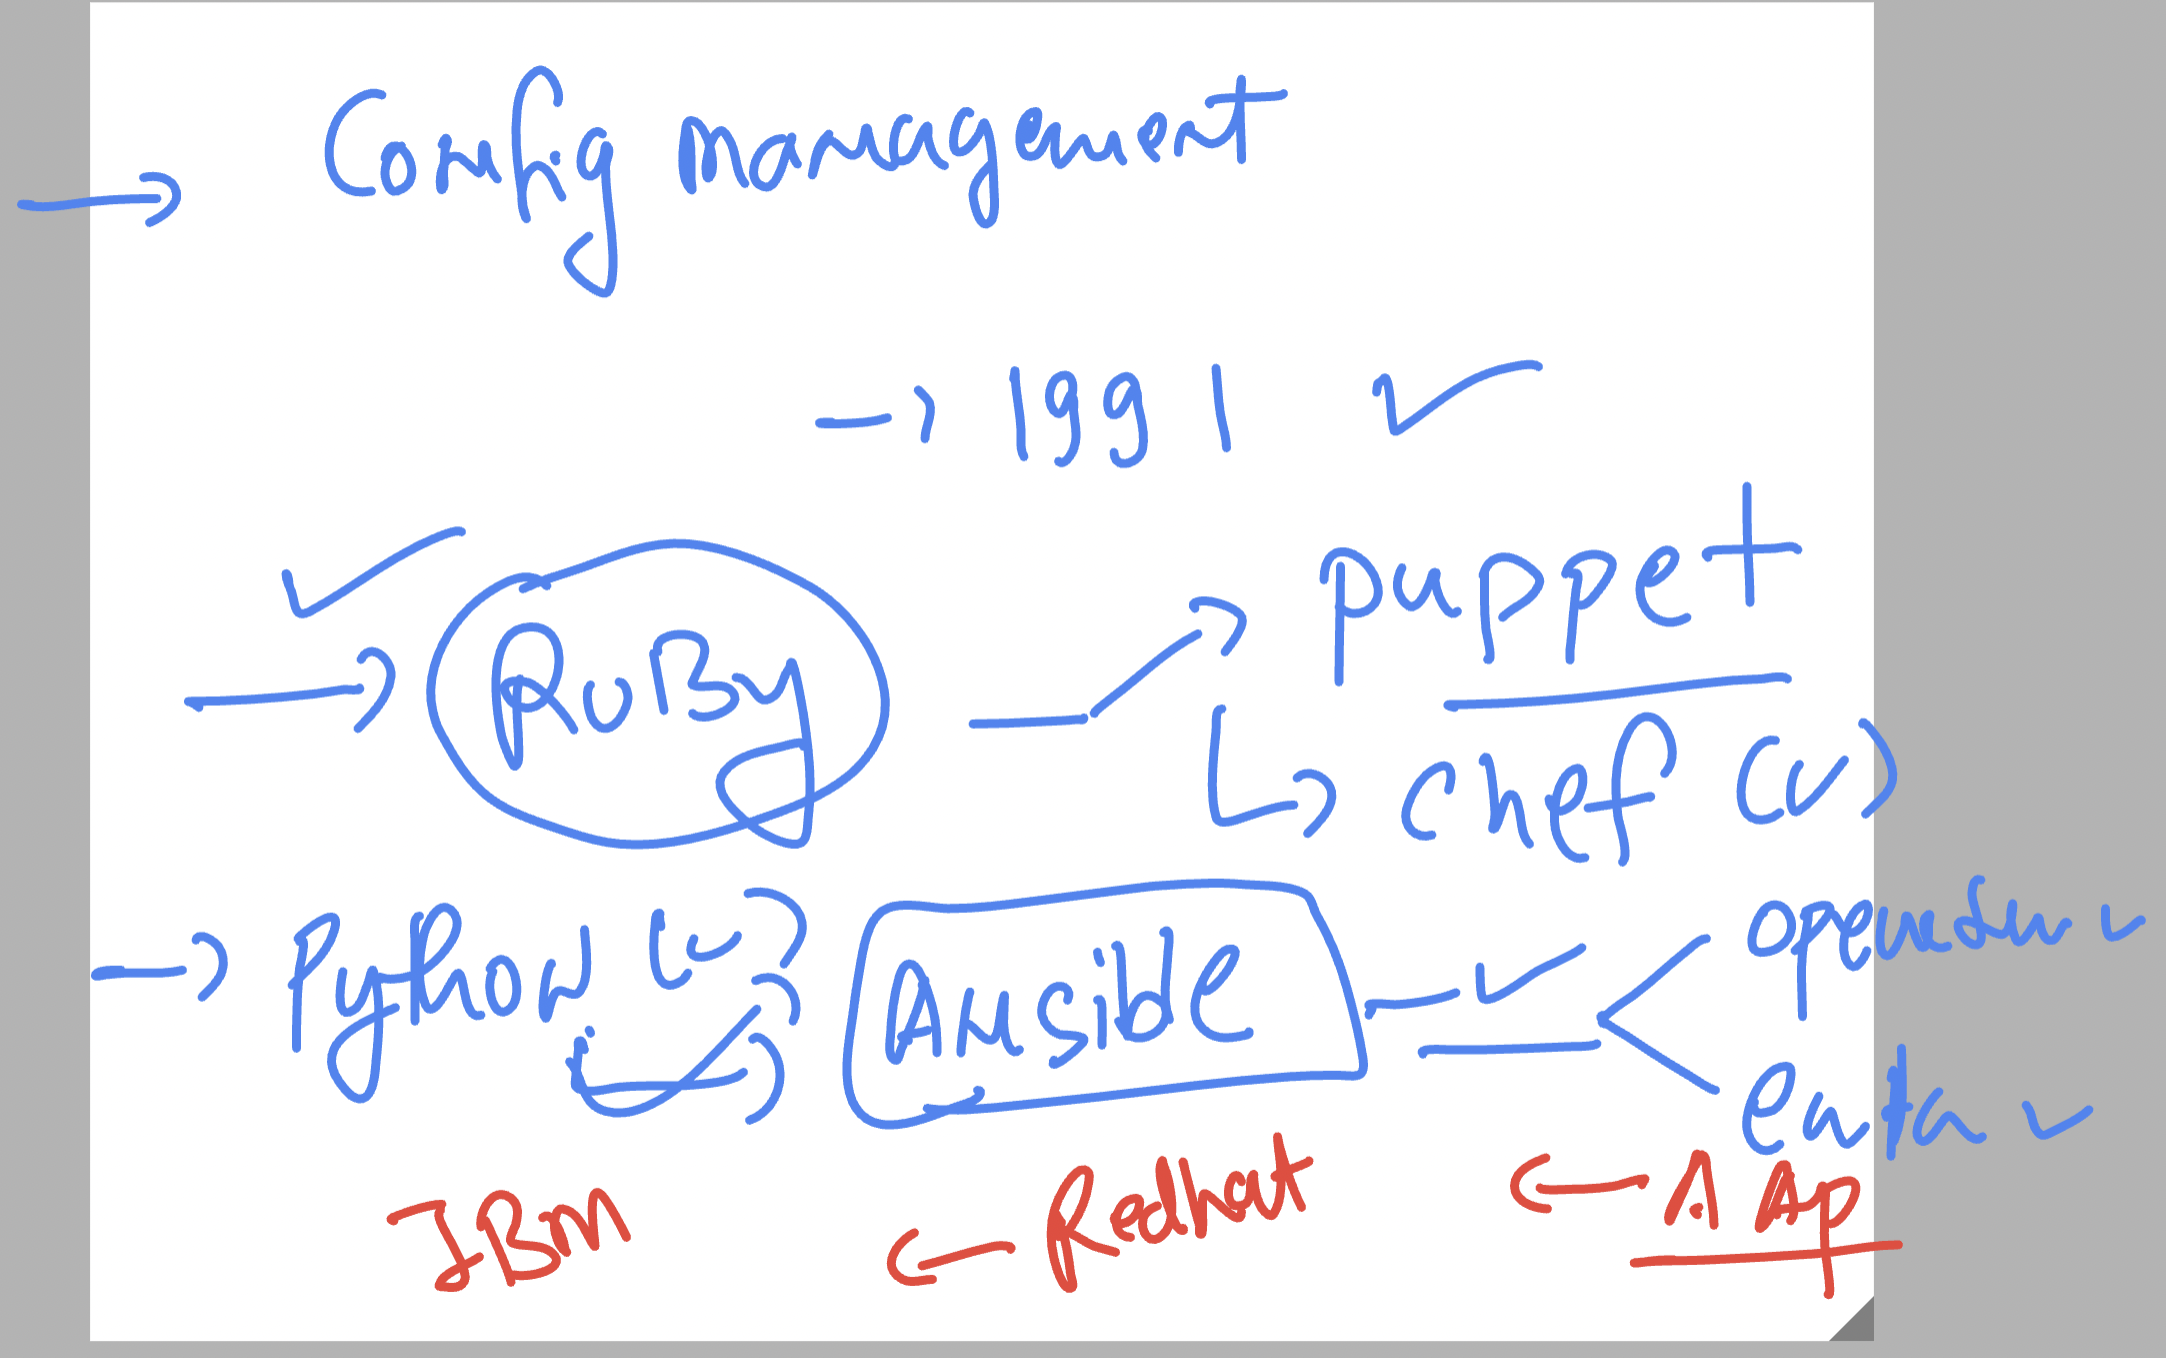 → Config management
→ 1991 ✓
✓
→ RuBy → puppet
↳ chef (✓)
→ Python (✓) Ansible ✓ < ✓
✓
IBM ← Redhat ← AAp